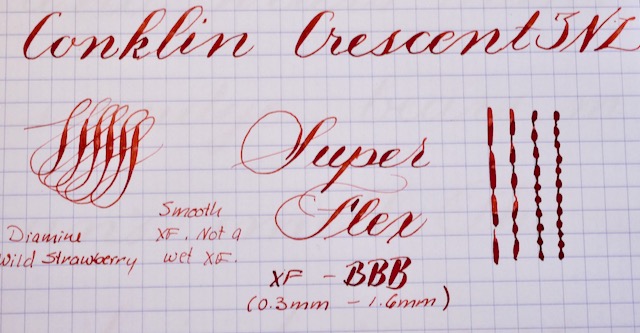 Conklin Crescent 3NL
Super
Flex
Smooth
XF. Not a
wet XF.
Diamine
Wild Strawberry
XF - BBB
(0.3mm - 1.6mm)